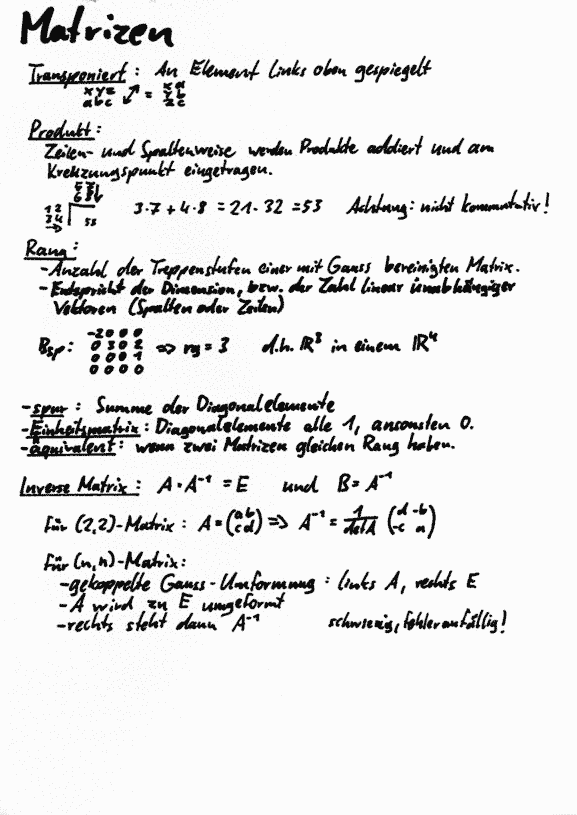 Matrizen
Transponiert: An Element links oben gespiegelt
x y z = x a
a b c y b
z c
Produkt:
Zeilen- und Spaltenweise werden Produkte addiert und am
Kreuzungspunkt eingetragen.
1 2
3 4 53 3·7 + 4·8 = 21· 32 = 53 Achtung: nicht kommutativ!
Rang:
-Anzahl der Treppenstufen einer mit Gauss bereinigten Matrix.
-Entspricht der Dimension, bzw. der Zahl linear unabhängiger
Vektoren (Spalten oder Zeilen)
-2 0 0 0
Bsp: 0 3 0 2 => rg = 3 d.h. IR³ in einem IR⁴
0 0 0 1
0 0 0 0
-spur: Summe der Diagonalelemente
-Einheitsmatrix: Diagonalelemente alle 1, ansonsten 0.
-äquivalent: wenn zwei Matrizen gleichen Rang haben.
Inverse Matrix: A · A⁻¹ = E und B = A⁻¹
für (2,2)-Matrix: A = (a b / c d) => A⁻¹ = 1/det A (d -b / -c a)
für (n,n)-Matrix:
-gekoppelte Gauss-Umformung: links A, rechts E
-A wird zu E umgeformt
-rechts steht dann A⁻¹ schwierig, fehleranfällig!